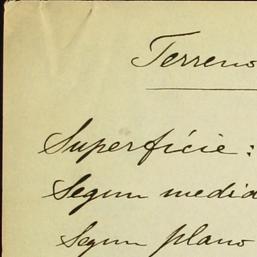 Terreno
Superfície:
Segun media
Segun plano